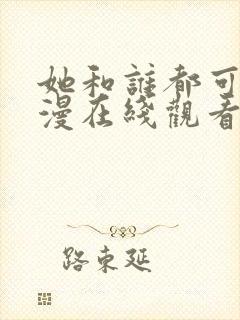 她和誰都可
漫在綫觀看
路東延